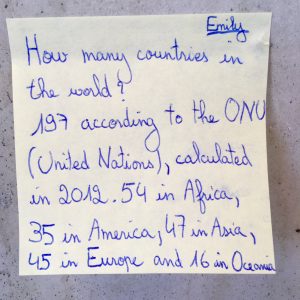 Emily
How many countries in
the world?
197 according to the ONU
(United Nations), calculated
in 2012. 54 in Africa,
35 in America, 47 in Asia,
45 in Europe and 16 in Oceania